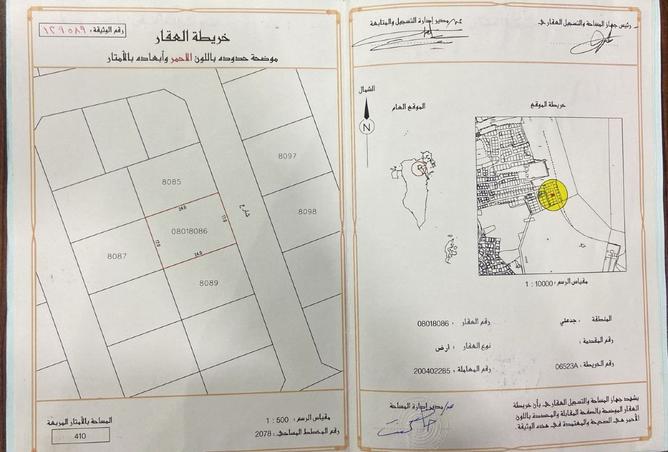 رئيس جهاز المساحة والتسجيل العقاري
عن/ مدير إدارة التسجيل والمتابعة
الشمال
N
الموقع العام
خريطة الموقع
مقياس الرسم: 10000 : 1
المنطقة : جدعلي
رقم العقار : 08018086
رقم المقدمة :
نوع العقار : ارض
رقم الخريطة : 06523A
رقم المعاملة : 200402285
يشهد جهاز المساحة والتسجيل العقاري بأن خريطة
العقار الموضحة بالصفحة المقابلة والمحددة باللون
الأحمر هي الصحيحة والمعتمدة في هذه الوثيقة.
عن/ مدير إدارة المساحة
رقم الوثيقة:
خريطة العقار
موضحة حدوده باللون الاحمر وأبعاده بالأمتار
8097
8085
شارع
8098
24.0
17.0
08018086
17.0
24.0
8087
8089
مقياس الرسم : 500 : 1
رقم المخطط المساحي : 2078
المساحة بالأمتار المربعة
410